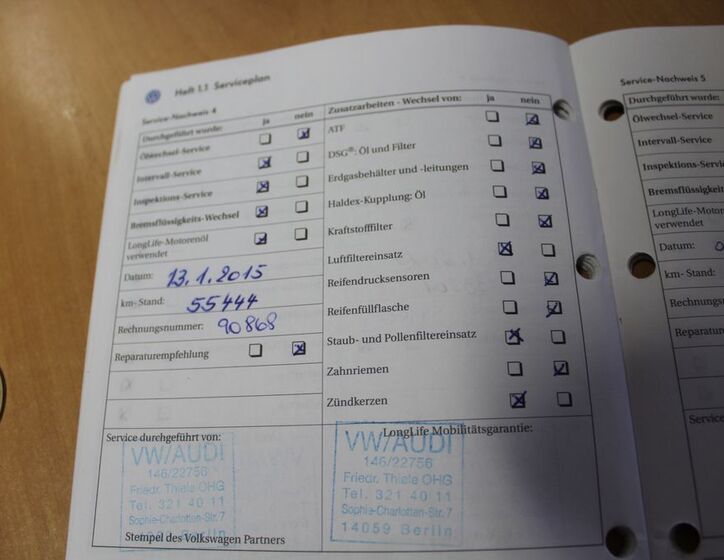 Heft 1.1 Serviceplan
Service-Nachweis 4
Durchgeführt wurde: ja nein
Ölwechsel-Service
Intervall-Service
Inspektions-Service
Bremsflüssigkeits-Wechsel
LongLife-Motorenöl
verwendet
Datum: 13.1.2015
km-Stand: 55444
Rechnungsnummer: 90868
Reparaturempfehlung
Service durchgeführt von:
VW/AUDI
146/22756
Friedr. Thiele OHG
Tel. 321 40 11
Sophie-Charlotten-Str. 7
14059 Berlin
Stempel des Volkswagen Partners
Zusatzarbeiten - Wechsel von: ja nein
ATF
DSG®: Öl und Filter
Erdgasbehälter und -leitungen
Haldex-Kupplung: Öl
Kraftstofffilter
Luftfiltereinsatz
Reifendrucksensoren
Reifenfüllflasche
Staub- und Pollenfiltereinsatz
Zahnriemen
Zündkerzen
LongLife Mobilitätsgarantie:
VW/AUDI
146/22756
Friedr. Thiele OHG
Tel. 321 40 11
Sophie-Charlotten-Str. 7
14059 Berlin
Service-Nachweis 5
Durchgeführt wurde:
Ölwechsel-Service
Intervall-Service
Inspektions-Service
Bremsflüssigkeits
LongLife-Motorenöl
verwendet
Datum:
km-Stand:
Rechnungsnumm
Reparaturemp
Service